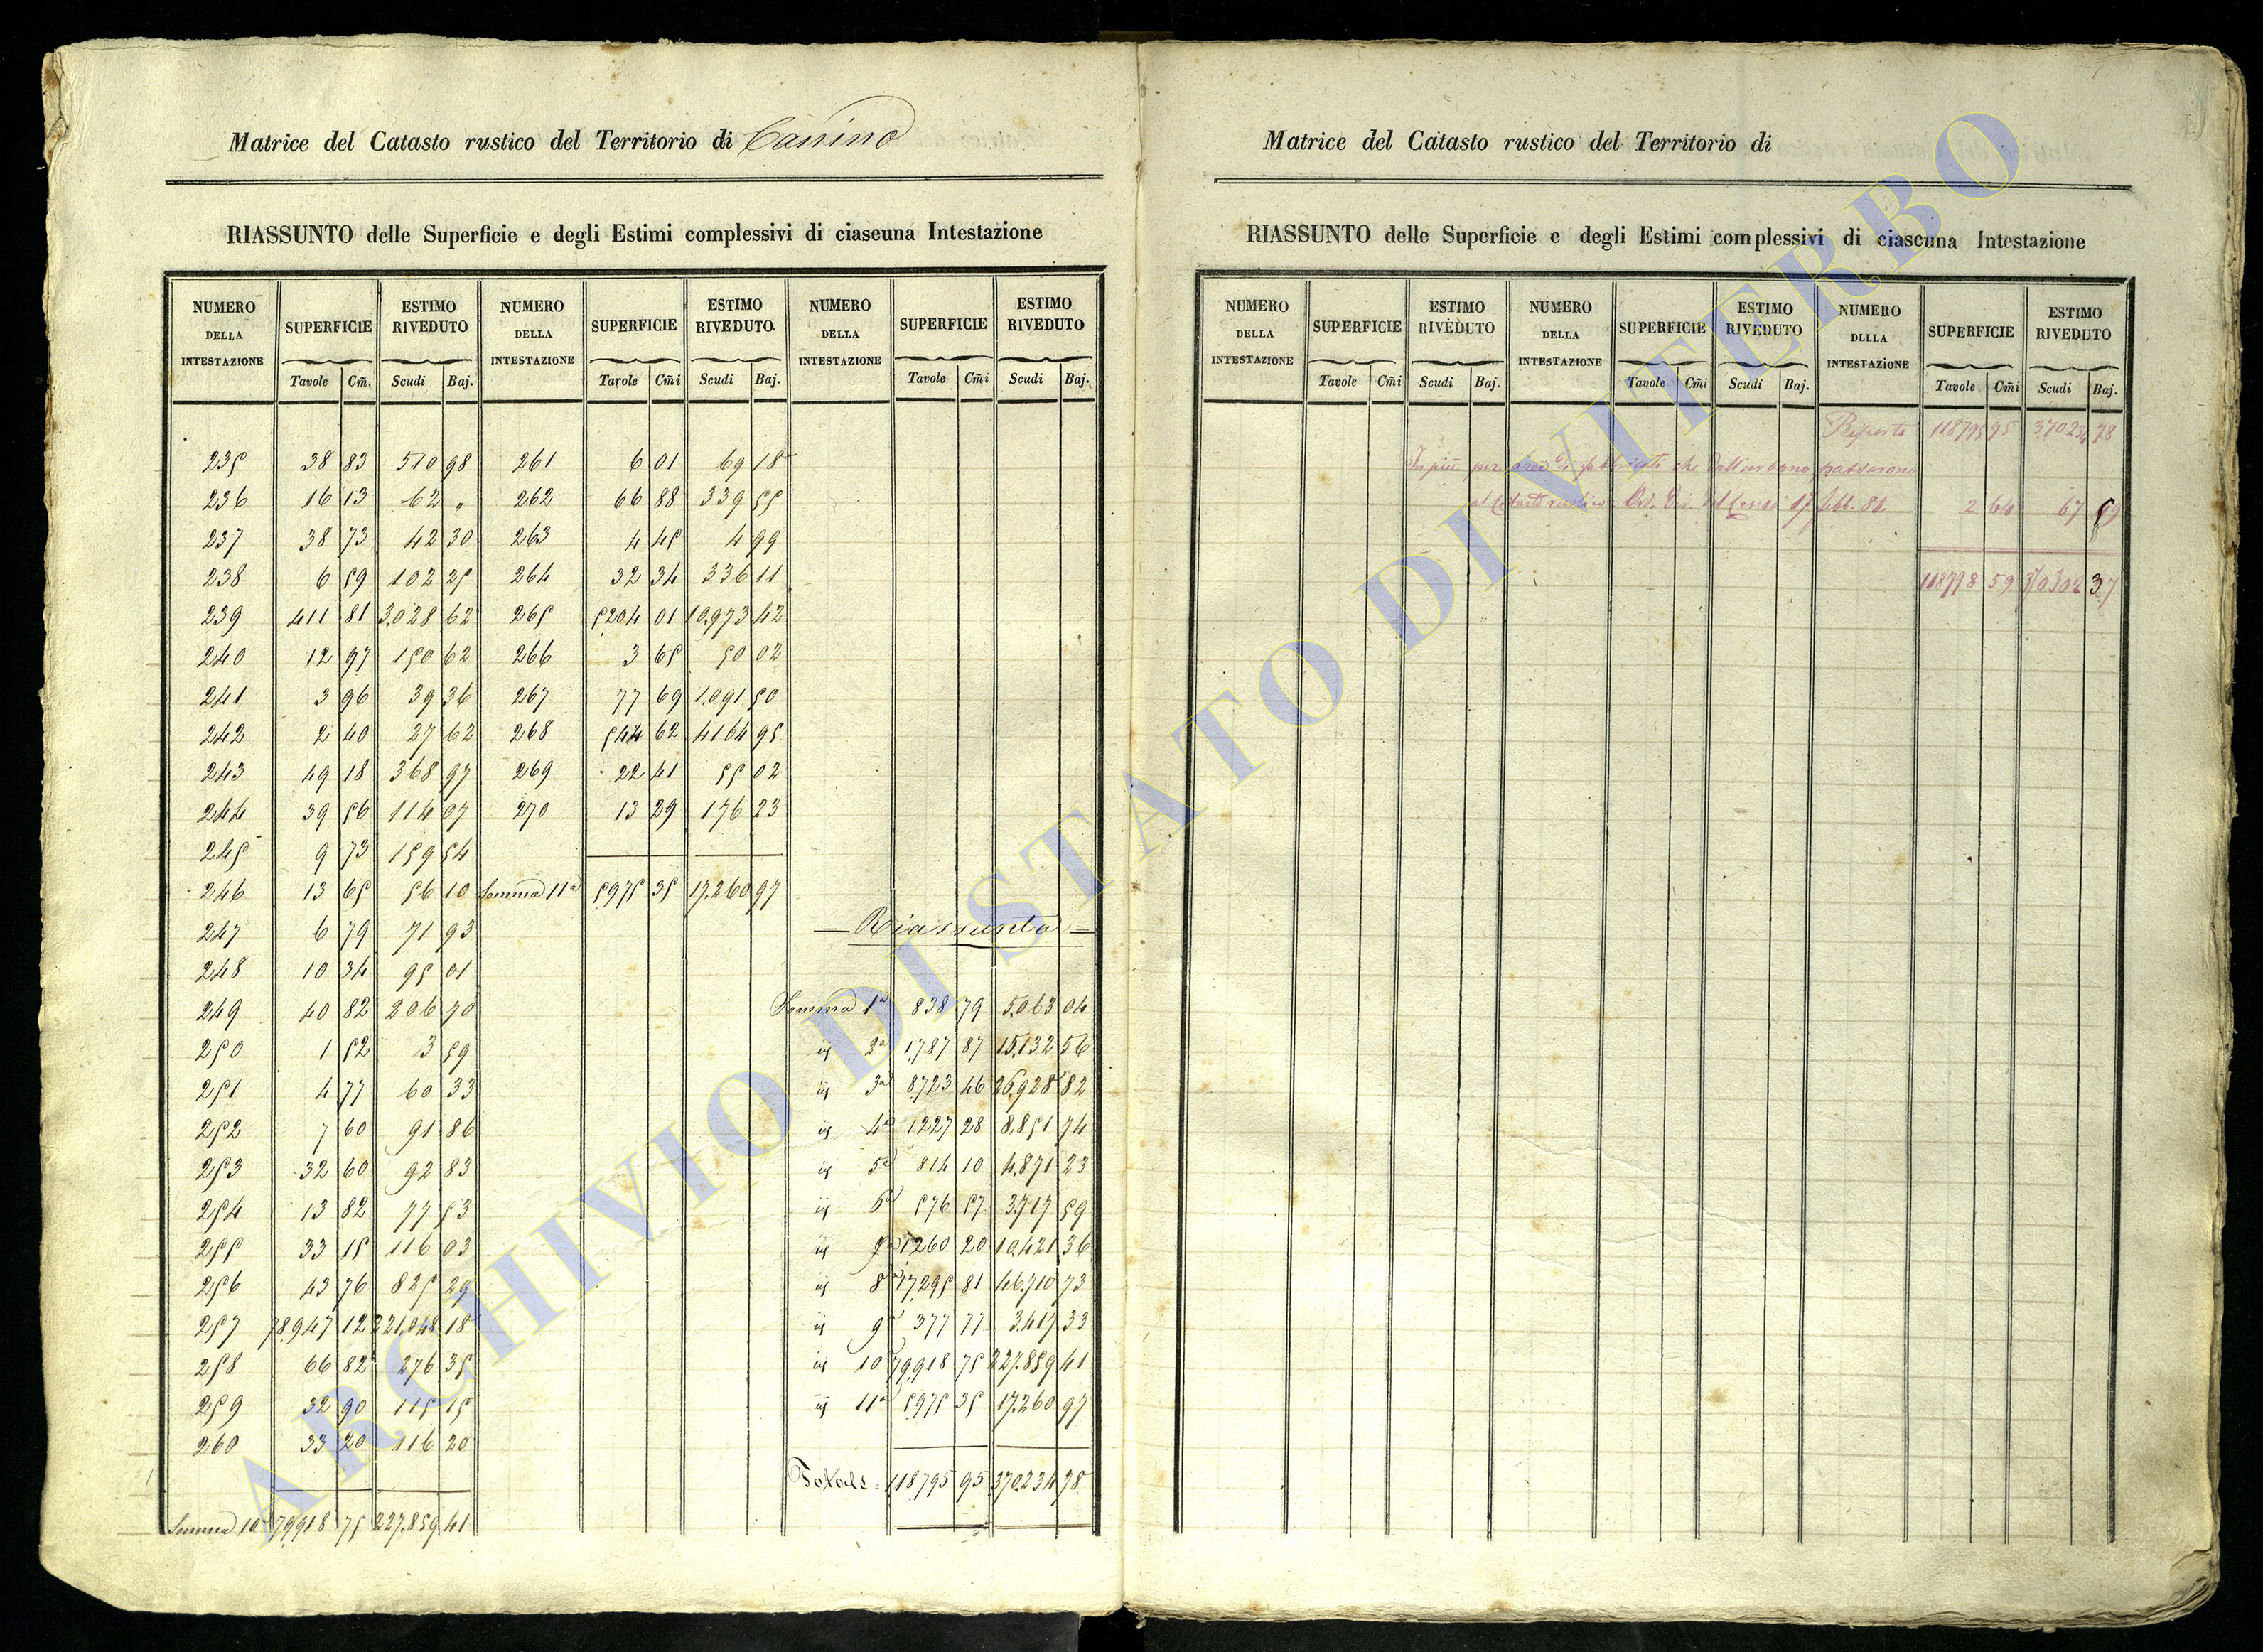 Matrice del Catasto rustico del Territorio di Canino
RIASSUNTO delle Superficie e degli Estimi complessivi di ciaseuna Intestazione
NUMERO DELLA INTESTAZIONE SUPERFICIE ESTIMO RIVEDUTO NUMERO DELLA INTESTAZIONE SUPERFICIE ESTIMO RIVEDUTO. NUMERO DELLA INTESTAZIONE SUPERFICIE ESTIMO RIVEDUTO
Tavole Cm̃. Scudi Baj. Tavole Cm̃i Scudi Baj. Tavole Cm̃i Scudi Baj.
235 38 83 510 98 261 6 01 69 18
236 16 13 62 „ 262 66 88 339 55
237 38 73 42 30 263 4 45 4 99
238 6 59 102 25 264 32 34 336 11
239 411 81 3,028 62 265 5204 01 10,973 42
240 12 97 150 62 266 3 65 50 02
241 3 96 39 36 267 77 69 1,091 50
242 2 40 27 62 268 544 62 4164 95
243 49 18 368 97 269 22 41 55 02
244 39 56 114 07 270 13 29 176 23
245 9 73 159 54
246 13 65 56 10 Somma 11a 5975 35 17.260 97
247 6 79 71 93 — Riassunto —
248 10 34 95 01
249 40 82 206 70 Somma 1a 838 79 5,063 04
250 1 52 3 59 id 2a 1,787 87 15,132 56
251 4 77 60 33 id 3a 8,723 46 26,928 82
252 7 60 91 86 id 4a 1,227 28 8,851 74
253 32 60 92 83 id 5a 814 10 4,871 23
254 13 82 77 53 id 6a 576 57 3,717 59
255 33 15 116 03 id 7a 1260 20 10,421 36
256 43 76 825 29 id 8a 17,295 81 46,710 73
257 78,947 12 221,048 18 id 9a 377 77 3,417 33
258 66 82 276 35 id 10a 79,918 75 227,859 41
259 32 90 115 15 id 11a 5,975 35 17,260 97
260 33 20 116 20
Totale = 118,795 95 370,234 78
Somma 10a 79,918 75 227,859 41
Matrice del Catasto rustico del Territorio di
RIASSUNTO delle Superficie e degli Estimi complessivi di ciascuna Intestazione
NUMERO DELLA INTESTAZIONE SUPERFICIE ESTIMO RIVEDUTO NUMERO DELLA INTESTAZIONE SUPERFICIE ESTIMO RIVEDUTO NUMERO DLLLA INTESTAZIONE SUPERFICIE ESTIMO RIVEDUTO
Tavole Cm̃i Scudi Baj. Tavole Cm̃i Scudi Baj. Tavole Cm̃i Scudi Baj.
Riporto 118795 95 370234 78
In più per aree di fabbricati che dall'urbano passarono
al Catasto rustico. Ord. Dir. del Censo 17 febb. 81. 2 64 67 59
118798 59 370302 37
ARCHIVIO DI STATO DI VITERBO